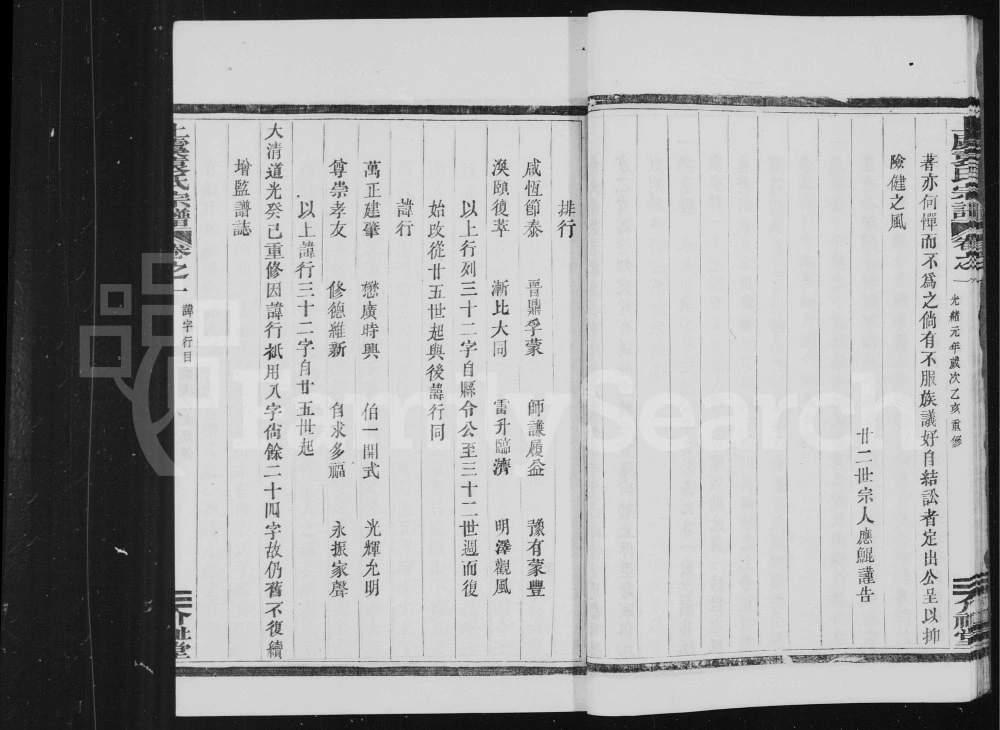 著亦何憚而不爲之倘有不服族議好自結訟者定出公呈以抑
險健之風
廿二世宗人應鯤謹告
光緒元年歲次乙亥重修
排行
咸恆節泰 晉鼎孚蒙 師謙履益 豫有蒙豐
渙頤復萃 漸比大同 雷升臨濟 明澤觀風
以上行列三十二字自縣令公至三十二世週而復
始攺從廿五世起與後諱行同
諱行
萬正建肇 懋廣時興 伯一開式 光輝允明
尊崇孝友 修德維新 自求多福 永振家聲
以上諱行三十二字自廿五世起
大清道光癸已重修因諱行祇用入字尙餘二十四字故仍舊不復續
增監譜誌
氏宗譜 卷之一 諱字行目
FamilySearch